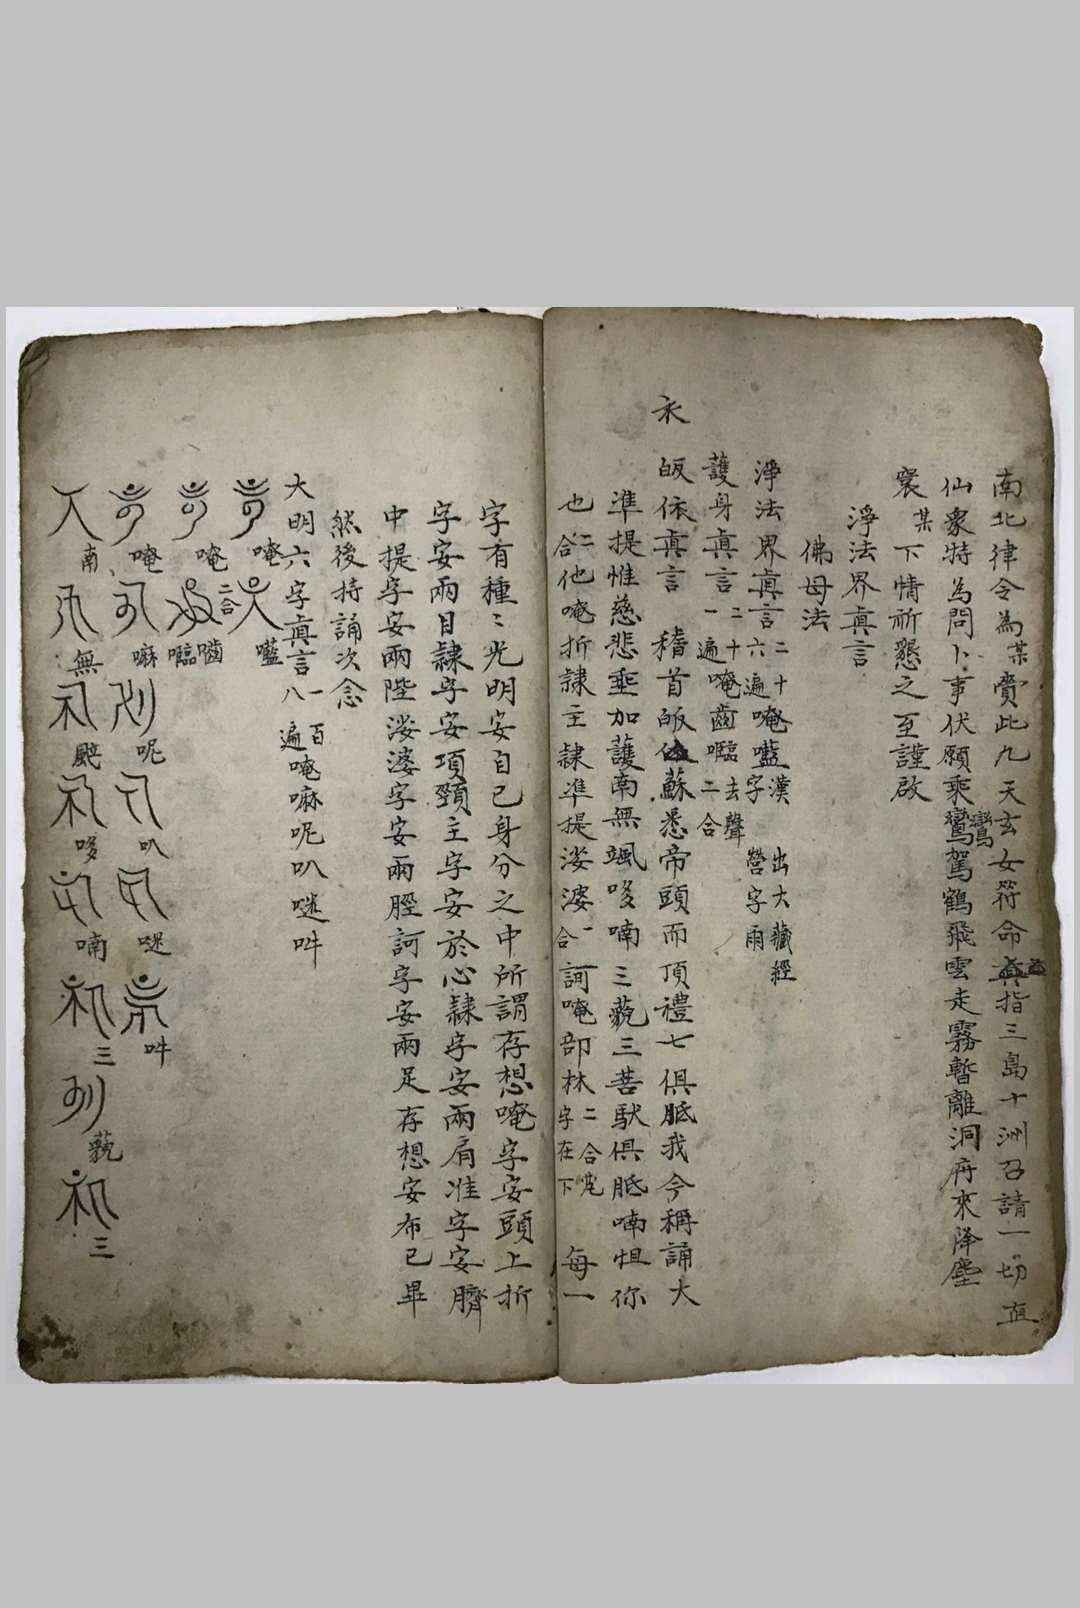 南北律令為某賫此九天玄女符命真指三島十洲召請一切直
仙眾特為問卜事伏願乘鸞駕鶴飛雲走霧暫離洞府來降塵
鸞
寰某下情祈懇之至謹啟
淨法界真言
佛母法
淨法界真言二十六遍唵㘕字漢 出大藏經
護身真言二十一遍唵齒㘕去聲二合
皈依真言 稽首皈依蘇悉帝頭面頂禮七俱胝我今稱誦大
準提惟慈悲垂加護南無颯哆喃三藐三菩馱俱胝喃怛你
也二合他唵折隸主隸準提娑婆一合訶唵部林二合 字在下 每一
字有種〻光明安自己身分之中所謂存想唵字安頭上折
字安兩目隸字安項頸主字安於心隸字安兩肩准字安臍
中提字安兩陛娑婆字安兩脛訶字安兩足存想安布已畢
然後持誦次念
大明六字真言一百八遍唵嘛呢叭㘕吽
唵 㘕
唵 齒㘕二合
唵 嘛 呢 叭 㘕 吽
南 無 颯 哆 喃 三 藐 三